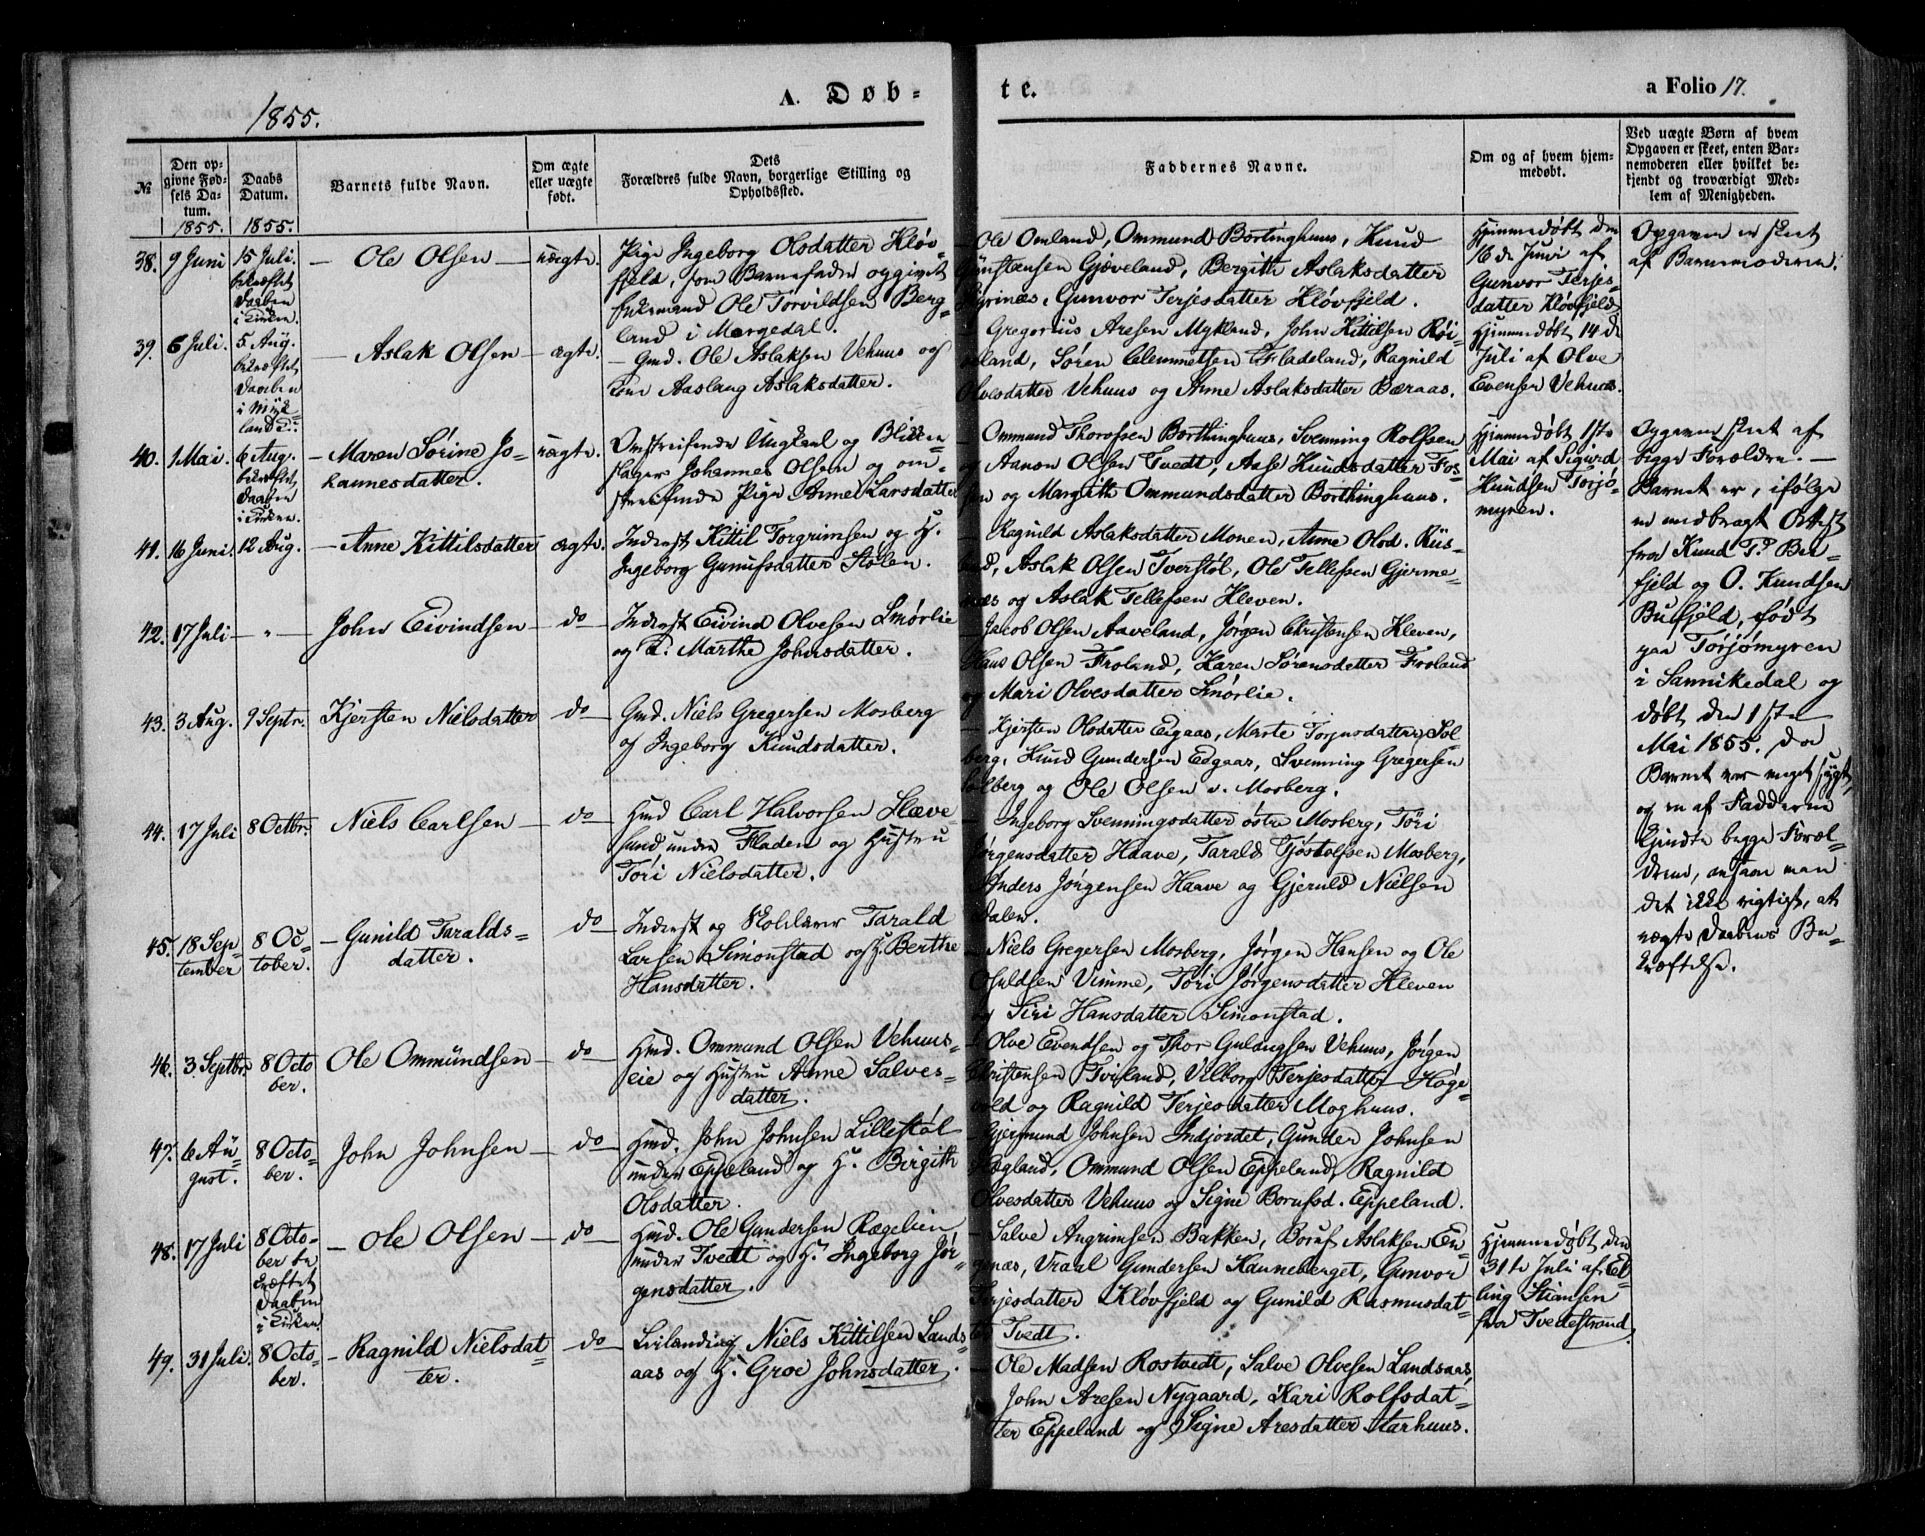 1855.
A. Døb-
te.
a Folio 17.
№
Den opgivne Fødsels Datum.
Daabs Datum.
Barnets fulde Navn.
Om ægte eller uægte født.
Dets Forældres fulde Navn, borgerlige Stilling og Opholdssted.
Faddernes Navne.
Om og af hvem hjemmedøbt.
Ved uægte Børn af hvem Opgaven er skeet, enten Barnemoderen eller hvilket bekjendt og troværdigt Medlem af Menigheden.
1855. 1855.
38. 9 Juni
15 Juli.
bekræftet
Daaben
i Kirken.
– Ole Olsen –
uægte.
Pige Ingeborg Olsdatter Kløv-
fjeld, som Barnefader opgivet
Ole Torvildsen Berg-
land i Morgedal.
Ole Omland, Ommund Bortinghuus, Knud
Gjøveland, Bergith Aslaksdatter
Gunvor Terjesdatter Kløvfjeld.
Hjemmedøbt den
16de Juni af
Gunvor Terjes-
datter Kløvfjeld
Opgaven er skeet
af Barnemoderen.
39. 6 Juli.
5 Aug.
bekræftet
Daaben
i Myk-
land K.
– Aslak Olsen –
ægte.
– Gmd. Ole Aslaksen Vehuus og
Kone Aaslaug Aslaksdatter.
Gregorius Aresen Mykland, John Kittilsen Røi-
land, Søren Clemmetsen Fladeland, Ragnild
Olvesdatter Vehuus og Anne Aslaksdatter Bæraas.
Hjemmedøbt 14de
Juli af Olve
Evensen Vehuus.
40. 1 Mai.
6 Aug.
bekræftet
Daaben
i Kirken.
– Maren Sørine Jo-
hannesdatter.
uægte.
Omstreifende Ungkarl og Blikken-
slager Johannes Olsen og om-
streifende Pige Anne Larsdatter
– Ommund Thorofsen Borthinghuus, Svenning Rolfsen
og Aanon Olsen Tvedt, Aase Knudsdatter Fos-
sen og Margith Ommundsdatter Borthinghuus.
Hjemmedøbt 1ste
Mai af Sigurd
Knudsen Torjø-
myren.
Opgaven skeet af
begge Forældre. –
Barnet er, ifølge
en medbragt Attest
fra Knud T. Bu-
fjeld og O. Knudsen
Bufjeld, født
paa Torjømyren
i Sannikedal og
døbt den 1ste
Mai 1855. Da
Barnet var meget sygt,
og en af Fadderne
kjendte begge Foræl-
drene, ansaae man
det ikke rigtigt, at
nægte Daabens Be-
kræftelse.
41. 16 Juni.
12 Aug.
– Anne Kittilsdatter
ægte.
Inderst Kittil Torgrimsen og H.
Ingeborg Gunufsdatter Stølen.
Ragnild Aslaksdatter Monen, Anne Olsd. Riis-
land, Aslak Olsen Tverstøl, Ole Tellefsen Gjerme-
næs og Aslak Tellefsen Kleven.
42. 17 Juli – " –
John Eivindsen –
do –
Inderst Eivind Olvesen Smørlie
og K. Marthe Johnsdatter.
– Jacob Olsen Aaveland, Jørgen Christensen Kleven,
Hans Olsen Froland, Karen Sørensdatter Froland
og Mari Olvesdatter Smørlie.
43. 3 Aug.
9 Septr.
Kjersten Nielsdatter
do –
Gmd. Niels Gregersen Mosberg
og Ingeborg Knudsdatter.
– Kjersten Olsdatter Eigaas, Marte Torjusdatter Sol-
berg, Knud Gundersen Edgaas, Svenning Gregersen
Solberg og Ole Olsen v. Mosberg.
44. 17 Juli
8 Octbr.
Niels Carlsen –
do –
Hmd Carl Halvorsen Slæve-
sund under Fladen og Hustru
Tóri Nielsdatter.
– Ingeborg Svenningsdatter østre Mosberg, Tóri
Jørgensdatter Haave, Tarald Tjøstolfsen Mosberg,
Anders Jørgensen Haave og Gjeruld Nielsen
Dalen.
45. 18 Sep-
tember
8 Oc-
tober.
– Gunild Taralds-
datter.
do –
Inderst og Skolelærer Tarald
Larsen Simonstad og H. Berthe
Hansdatter.
– Niels Gregersen Mosberg, Jørgen Hansen og Ole
Osuldsen Vimme, Tóri Jørgensdatter Kleven
og Siri Hansdatter Simonstad.
46. 3. Septbr.
8 Octo
ber.
Ole Ommundsen –
do –
Hmd. Ommund Olsen Vehuus-
eie og Hustru Anne Salves-
datter.
– Olve Evendsen og Thor Gulaugsen Vehuus, Jørgen
Christensen Tviland, Vilborg Terjesdatter Høge-
vold og Ragnild Terjesdatter Moghuus.
47. 6 Au-
gust.
8 Octo-
ber.
John Johnsen –
do –
Hmd. John Johnsen Lillestøl
under Eppeland og H. Birgith
Olsdatter.
– Gjermund Johnsen Indjordet, Gunder Johnsen
Hægland, Ommund Olsen Eppeland, Ragnild
Olvesdatter Vehuus og Signe Borufsd. Eppeland.
48. 17 Juli
8 Octo-
ber be
kræftet
Daaben
i Kirken
– Ole Olsen –
do –
Hmd. Ole Gundersen Rægelien
under Tvedt og H. Ingeborg Jør-
gensdatter.
– Salve Angrimsen Bakken, Boruf Aslaksen En-
genæs, Vraal Gundersen Kanneberget, Gunvor
Terjesdatter Kløvfjeld og Gunild Rasmusdat-
ter Tvedt.
Hjemmedøbt den
31te Juli af El-
ling Stiansen
fra Tvedestrand
49. 31 Juli.
8 Octo-
ber.
– Ragnild Nielsdat-
ter.
do –
Leilænding Niels Kittilsen Lands-
aas og H. Groe Johnsdatter.
– Ole Madsen Rostvedt, Salve Olvesen Landsaas,
John Aresen Nygaard, Kari Rolfsdat-
ter Eppeland og Signe Aresdatter Aarhuus.